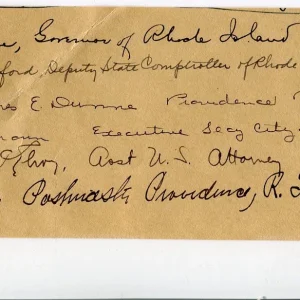 Governor of Rhode Island
ford, Deputy State Comptroller of Rhode
es E. Dunne Providence
Executive Secy City
Asst U.S. Attorney
Postmaster Providence, R. I